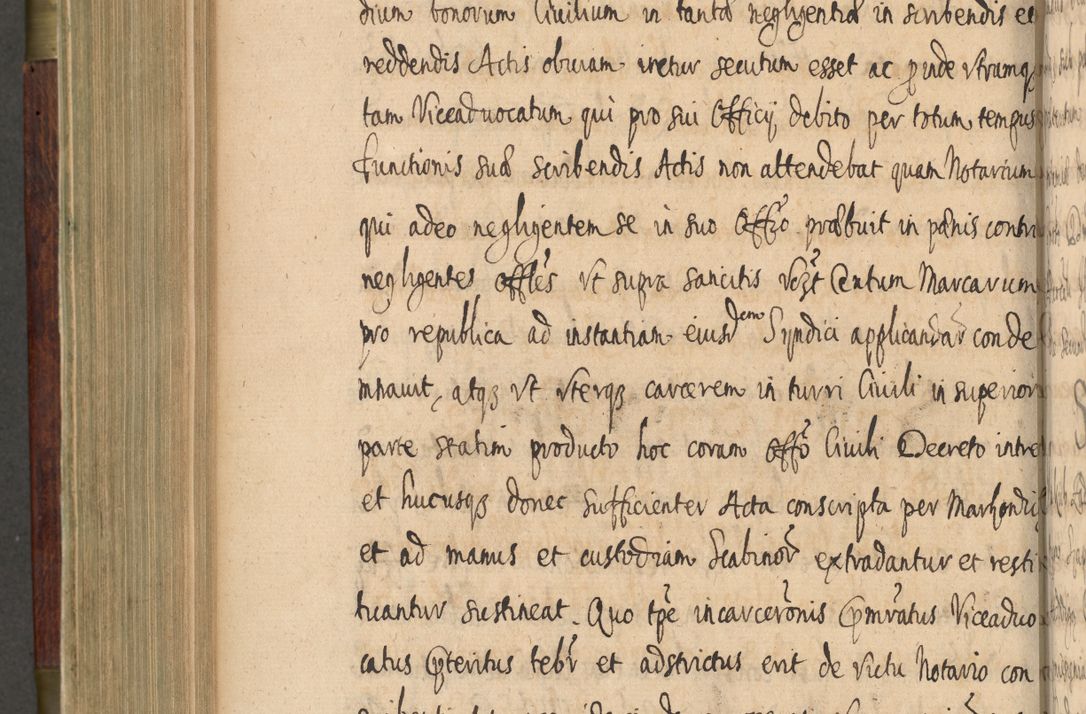 dium bonorum Civilium in tanta negligentia in scribendis et
reddendis Actis obviam iretur secutum esset ac ꝓinde utramqꝫ
tam Viceadvocatum qui pro sui Officij debito per totum tempus
functionis suæ scribendis Actis non attendebat quam Notarium
qui adeo negligentem se in suo Offo præbuit in pænis contra
negligentes offles ut supra sancitis Centum Marcarum
pro republica ad instantiam eiusdem Syndici applicandar conde
mnavit, atqꝫ ut uterqꝫ carcerem in turri Civili in superiori
parte statim producto hoc coram offo Civili Decreto intret
et hucusqꝫ donec sufficienter Acta conscripta per
et ad manus et custodiam Scabinor extradantur et resti
tuantur sustineat. Quo tpe incarceronis Viceadvo
catus et adstrictus erit de victu Notario con